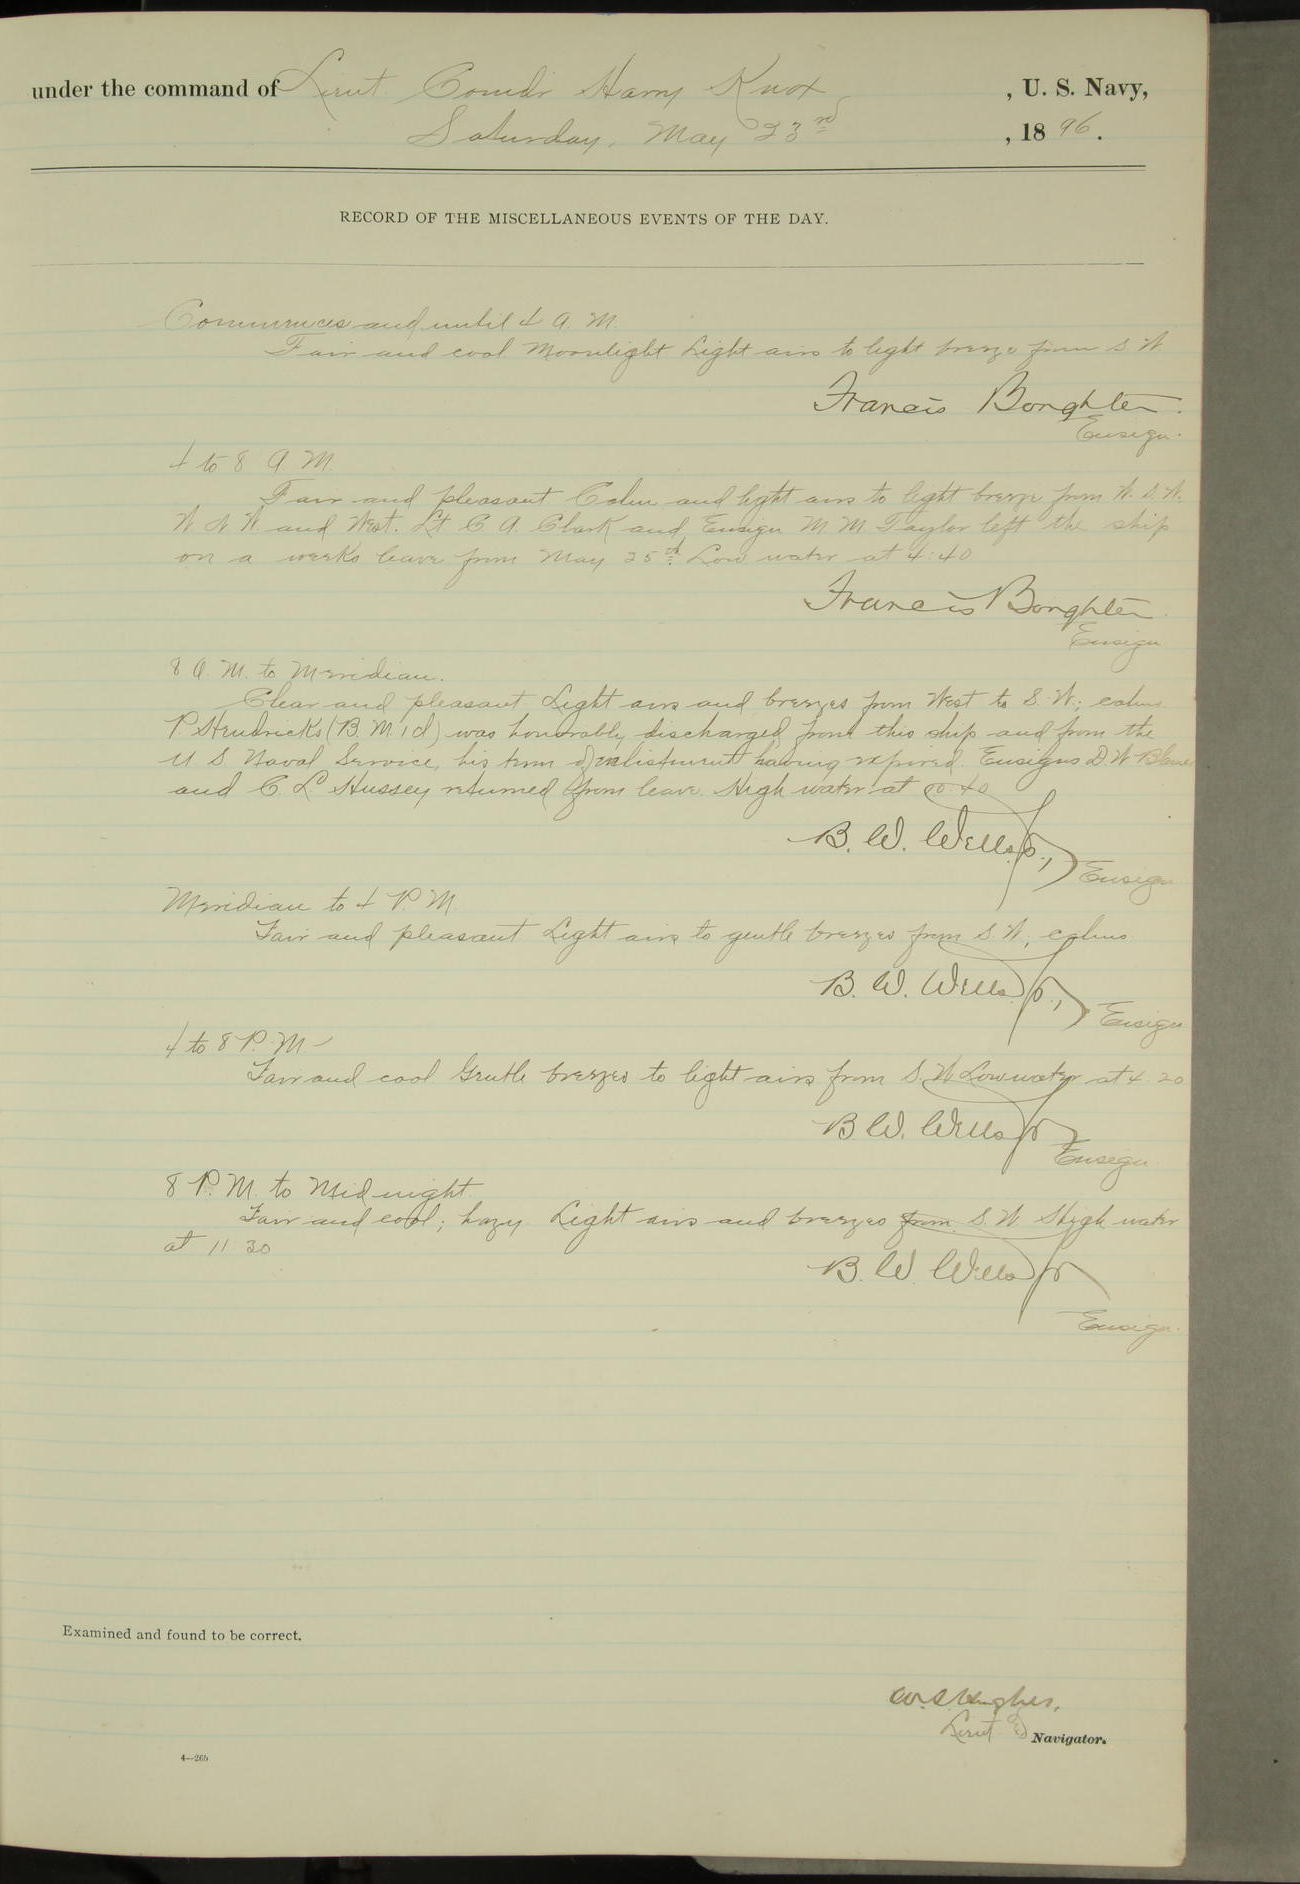 under the command of Lieut. Comdr Harry Knox, U. S. Navy,
Saturday, May 23rd, 1896.
RECORD OF THE MISCELLANEOUS EVENTS OF THE DAY.
Commences and until 4 A. M.
Fair and cool Moonlight Light airs to light breeze from S. W
Francis Boughter.
Ensign.
4 to 8 A M.
Fair and pleasant Calm and light airs to light breeze from W. S. W.
W N W and West. Lt C A. Clark and Ensign M M Taylor left the ship
on a weeks leave from May 25th. Low water at 4:40
Francis Boughter
Ensign
8 A. M. to Meridian.
Clear and pleasant Light airs and breezes from West to S. W.; calms
P. Hendricks (B. M. 1 cl) was honorably discharged from this ship and from the
U S. Naval Service, his term of enlistment having expired. Ensigns D. W
and C. L Hussey returned from leave. High water at 10 40
B. W. Wells Jr.,
Ensign
Meridian to 4 P. M.
Fair and pleasant Light airs to gentle breezes from S. W, calms
B. W. Wells Jr.,
Ensign
4 to 8 P. M
Fair and cool Gentle breezes to light airs from S. W Low water at 4. 20
B W. Wells Jr
Ensign
8 P. M. to Mid night
Fair and cool; hazy. Light airs and breezes from S. W High water
at 11 30
B. W Wells Jr
Ensign.
Examined and found to be correct.
W. S. Hughes,
Lieut Navigator.
4—266